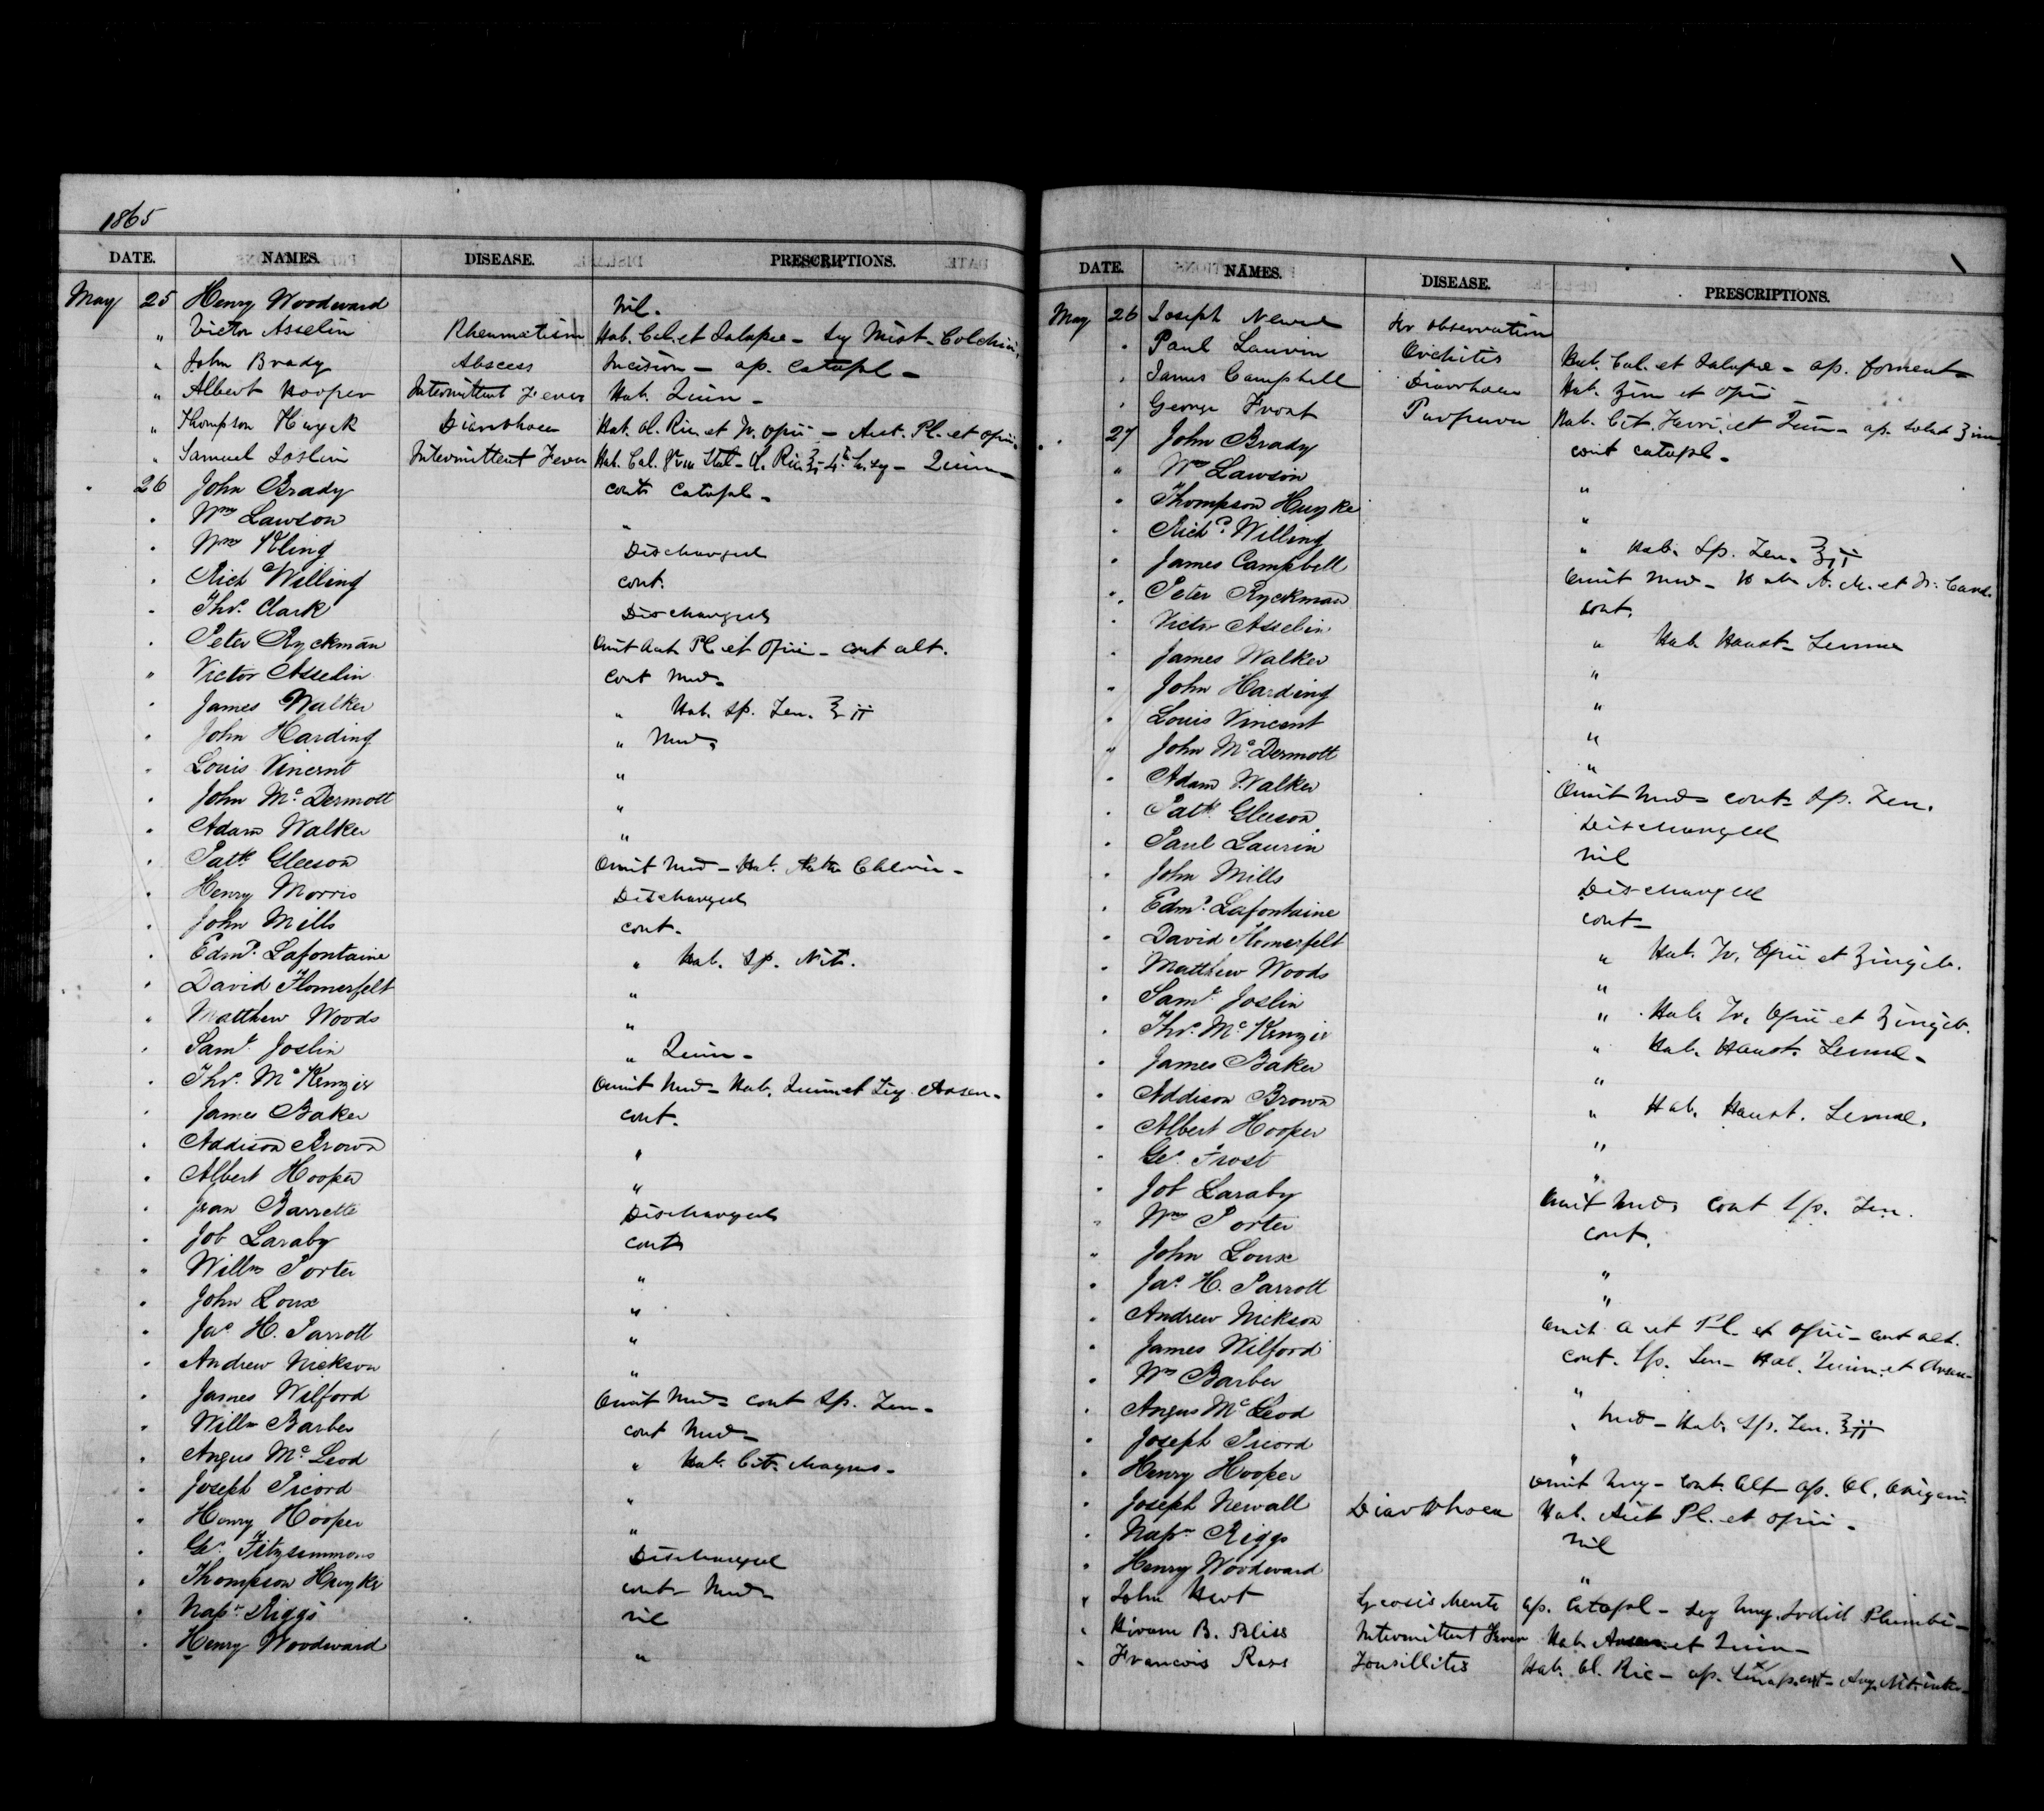 1865
DATE. NAMES. DISEASE. PRESCRIPTIONS.
May 25 Henry Woodward nil.
" Victor Asselin Rheumatism Hab. Cal. et Jalapae - Mist. Colchici
" John Brady Abscess Incision - ap. Catapl -
" Albert Hooper Intermittent Fever Hab. Quin -
" Thompson Huyck Diarrhoea Hab. Ol. Ric. et Tr. Opii - Pl. et Opii.
" Samuel Joslin Intermittent Fever Hab. Cal. Stat - Ol. Ric ℥i - Quin -
" 26 John Brady cont. Catapl -
" Wm Lawson "
" Wm Kling Discharged
" Richd Willing cont.
" Thos. Clark Discharged
" Peter Ryckman Omit Pl et Opii - cont alt.
" Victor Asselin cont Med -
" James Walker " Hab. Sp. Fen. ℥ ii
" John Harding " Med.
" Louis Vincent "
" John Mc. Dermott "
" Adam Walker "
" Patk. Gleeson Omit Med - Hab. Chlorin -
" Henry Morris Discharged
" John Mills cont.
" Edmd. Lafontaine " Hab. Sp. Nit.
" David Homerfelt "
" Matthew Woods "
" Saml. Joslin " Quin -
" Thos. McKenzie Omit Med - Hab. Quin et Liq. Arsen -
" James Baker cont.
" Addison Brown "
" Albert Hooper "
" Jean Barrette Discharged
" Job Laraby cont
" Willm Porter "
" John Loux "
" Jas. H. Parrott "
" Andrew Nickson "
" James Wilford Omit Med - cont Sp. Fen -
" Willm Barber cont Med -
" Angus Mc. Leod " Hab. Cit. Magnes -
" Joseph Picord "
" Henry Hooper "
" Geo. Fitzsimmons Discharged
" Thompson Huyke cont - Med -
" Napn Riggs nil
" Henry Woodward "
DATE. NAMES. DISEASE. PRESCRIPTIONS.
May 26 Joseph Newell for observation
" Paul Lauvin Orchitis Hab. Cal. et Jalapae - ap. foment -
" James Campbell Diarrhoea Hab. Zin et Opii -
" George Frost Purpura Hab. Cit. Ferri. et Quin - ap.
" 27 John Brady cont catapl -
" Wm Lawson "
" Thompson Huyke "
" Richd. Willing " Hab. Sp. Fen. ℥ii
" James Campbell Omit Med -
" Peter Ryckman cont.
" Victor Asselin " Hab. Haust - Sennae
" James Walker "
" John Harding "
" Louis Vincent "
" John Mc. Dermott "
" Adam Walker Omit Med - cont Sp. Fen.
" Patk. Gleeson Discharged
" Paul Laurin nil
" John Mills Discharged
" Edmd. Lafontaine cont -
" David Homerfelt " Hab. Tr. Opii et Zingib.
" Matthew Woods "
" Saml. Joslin " Hab. Tr. Opii et Zingib.
" Thos. McKenzie " Hab. Haust. Sennae -
" James Baker "
" Addison Brown " Hab. Haust. Sennae.
" Albert Hooper "
" Geo. Frost "
" Job Laraby Omit Med. cont Sp. Fen.
" Wm Porter cont.
" John Loux "
" Jas. H. Parrott "
" Andrew Nickson Omit Pl. et Opii - cont alt.
" James Wilford cont. Sp. Fen - Hab. Quin. et Arsen -
" Wm Barber "
" Angus Mc. Leod " Med - Hab. Sp. Fen. ℥ii
" Joseph Picord "
" Henry Hooper Omit Ung - cont. Alt - ap. Ol. Origani
" Joseph Newall Diarrhoea Hab. Pl. et Opii -
" Napn Riggs nil
" Henry Woodward "
" John Hart Sycosis Menti ap. Catapl - Ung. Iodid Plumbi -
" Hiram B. Bliss Intermittent Fever Hab. Arsen et Quin -
" Francois Ross Tonsillitis Hab. Ol. Ric - ap.